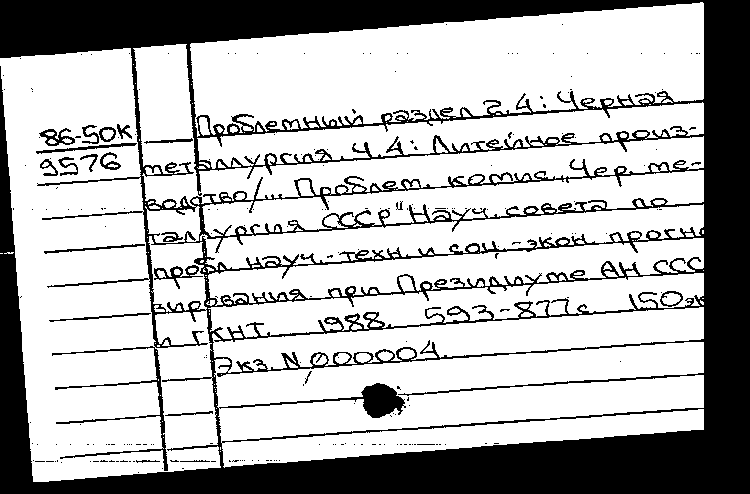 86-50К
9576
Проблемный раздел 2.4: Черная
металлургия. Ч.4: Литейное произ-
водство/... Проблем. комис. „Чер. ме-
таллургия СССР" Науч. совета по
пробл. науч.-техн. и соц.-экон. прогно
зирования при Президиуме АН ССС
и ГКНТ. 1988. 593-877с. 150эк
Экз. N 000004.